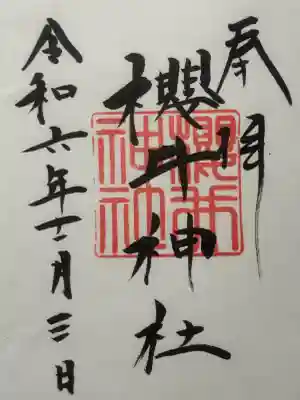 奉拝
櫻井神社
令和六年十二月三日
櫻井神社